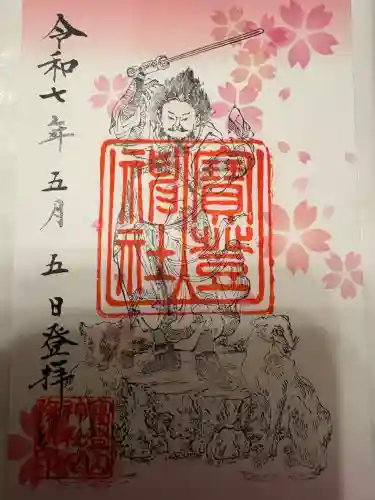 寶登山
神社
令和七年五月五日登拝